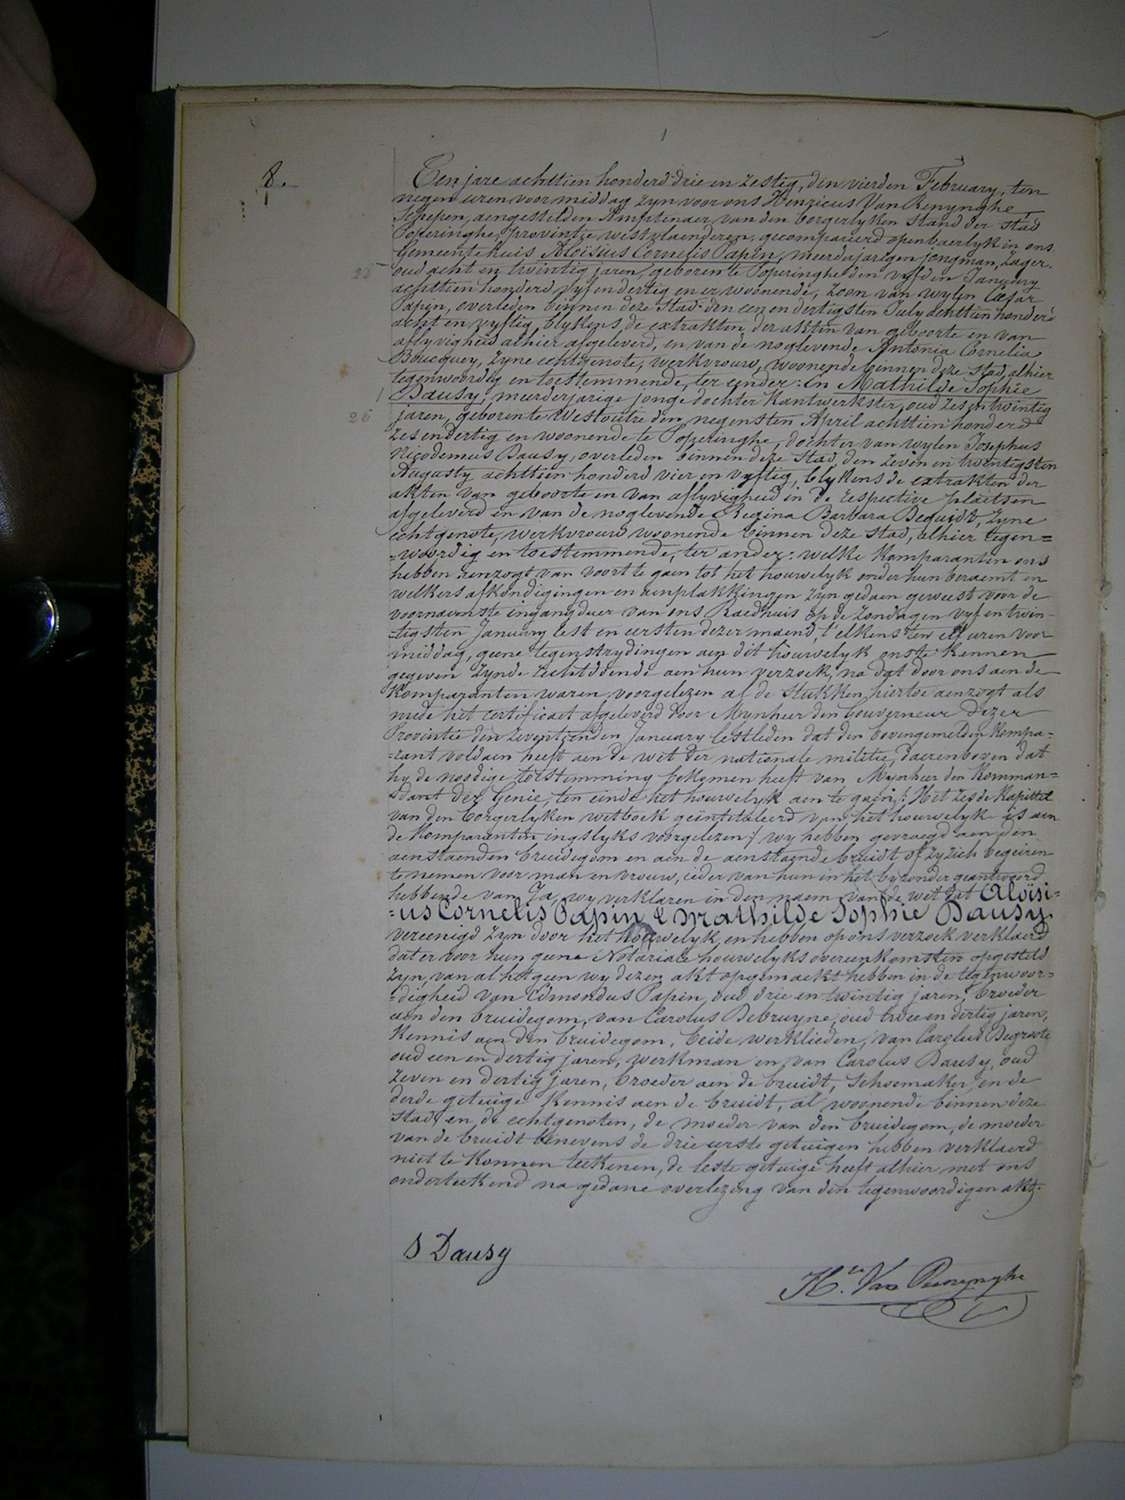 8.
Een jare achttien honderd drie en zestig, den vierden February, ten
negen uren voormiddag zyn voor ons Henricus Van Renynghe
Schepen, aengestelden Amptenaer van den borgerlyken stand der stad
Poperinghe, provintie westvlaenderen, gecompareerd openbaerlyk in ons
Gemeentehuis Aloïsius Cornelis Papin, meerderjarigen jongman, Zager,
28 oud acht en twintig jaren, geboren te Poperinghe den vyfden January
achttien honderd vyf en dertig en er woonende, zoon van wylen Cesar
Papin, overleden binnen deze stad den een en dertigsten July achttien honderd
acht en vyftig, blykens de extrakten der akten van geboorte en van
aflyvigheid alhier afgeleverd, en van de noglevende Antonia Cornelia
Boucquey, zyne echtgenote, werkvrouw, woonende binnen deze stad, alhier
tegenwoordig en toestemmende, ter eender: en Mathilde Sophie
Dausy, meerderjarige jonge dochter Kantwerkster, oud zes en twintig
26 jaren, geboren te Westoutre den negensten April achttien honderd
zes en dertig en woonende te Poperinghe, dochter van wylen Josephus
Nicodemus Dausy, overleden binnen deze stad, den zeven en twintigsten
Augusty achttien honderd vier en vyftig, blykens de extrakten der
akten van geboorte en van aflyvigheid in de respective plaetsen
afgeleverd en van de noglevende Regina Barbara Dequidt, zyne
echtgenote, werkvrouw woonende binnen deze stad, alhier tegen=
=woordig en toestemmende, ter ander: welke Komparanten ons
hebben aenzogt van voort te gaen tot het houwelyk onder hun beraemt en
welkers afkondigingen en aenplakkingen zyn gedaen geweest voor de
voornaemste ingangdeur van ons Raedhuis op de zondagen vyf en twin-
-tigsten January lest en eersten dezer maend, t'elkens ten elf uren voor
middag, geene tegenstrydingen aen dit houwelyk ons te kennen
gegeven zynde rechtdoende aen hun verzoek, na dat door ons aen de
Komparanten waren voorgelezen al de Stukken hiertoe aenzogt als
mede het certificaet afgeleverd door Mynheer den Gouverneur dezer
Provintie den zeventienden January lestleden dat den bovengemelden Kompa=
=rant voldaen heeft aen de wet der nationale militie, daerenboven dat
hy de noodige toestemming bekomen heeft van Mynheer den Komman-
-dant der Genie, ten einde het houwelyk aen te gaen: Het zesde Kapittel
van den borgerlyken wetboek geïntituleerd van het houwelyk is aen
de Komparanten insgelyks voorgelezen: wy hebben gevraegd aen den
aenstaenden bruidegom en aen de aenstaende bruidt of zy zich begeiren
te nemen voor man en vrouw, ieder van hun in het byzonder geantwoord
hebbende van Ja, wy verklaren in den naem van de wet dat Aloïsi-
-us Cornelis Papin & Mathilde Sophie Dausy,
vereenigd zyn door het houwelyk, en hebben op ons verzoek verklaerd
dat er voor hun geene Notariale houwelyks overeenkomsten opgesteld
zyn, van al het geen wy dezen akt opgemaekt hebben in de tegenwoor=
=digheid van Edmondus Papin, oud drie en twintig jaren, broeder
aen den bruidegom, van Carolus Debruyne, oud twee en dertig jaren,
Kennis aen den bruidegom, beide werklieden, van Carolus Degroote
oud een en dertig jaren, werkman en van Carolus Dausy, oud
zeven en dertig jaren, broeder aen de bruidt, schoemaker, en de
derde getuige Kennis aen de bruidt, al woonende binnen deze
stad, en de echtgenoten, de moeder van den bruidegom, de moeder
van de bruidt benevens de drie eerste getuigen hebben verklaerd
niet te Konnen teekenen, de leste getuige heeft alhier met ons
onderteekend na gedane overlezing van den tegenwoordigen akt.
S Dausy
H.ri Van Renynghe